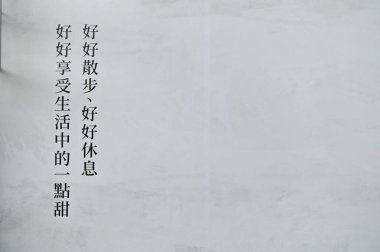 好好散步、好好休息
好好享受生活中的一點甜